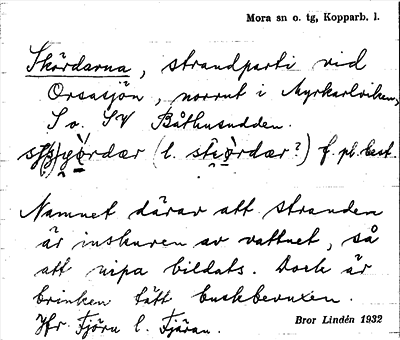 Mora sn o. tg, Kopparb. l.
Skördarna, strandparti vid
Orsasjön, norrut i Myrkarlviken,
S o. SV Båthusudden.
(l. stiördær?) f. pl. best.
Namnet därav att stranden
är inskuren av vattnet, så
att nipa bildats. Dock är
brinken tätt buskbevuxen.
Jfr Fjöru l. Fjäran.
Bror Lindén 1932